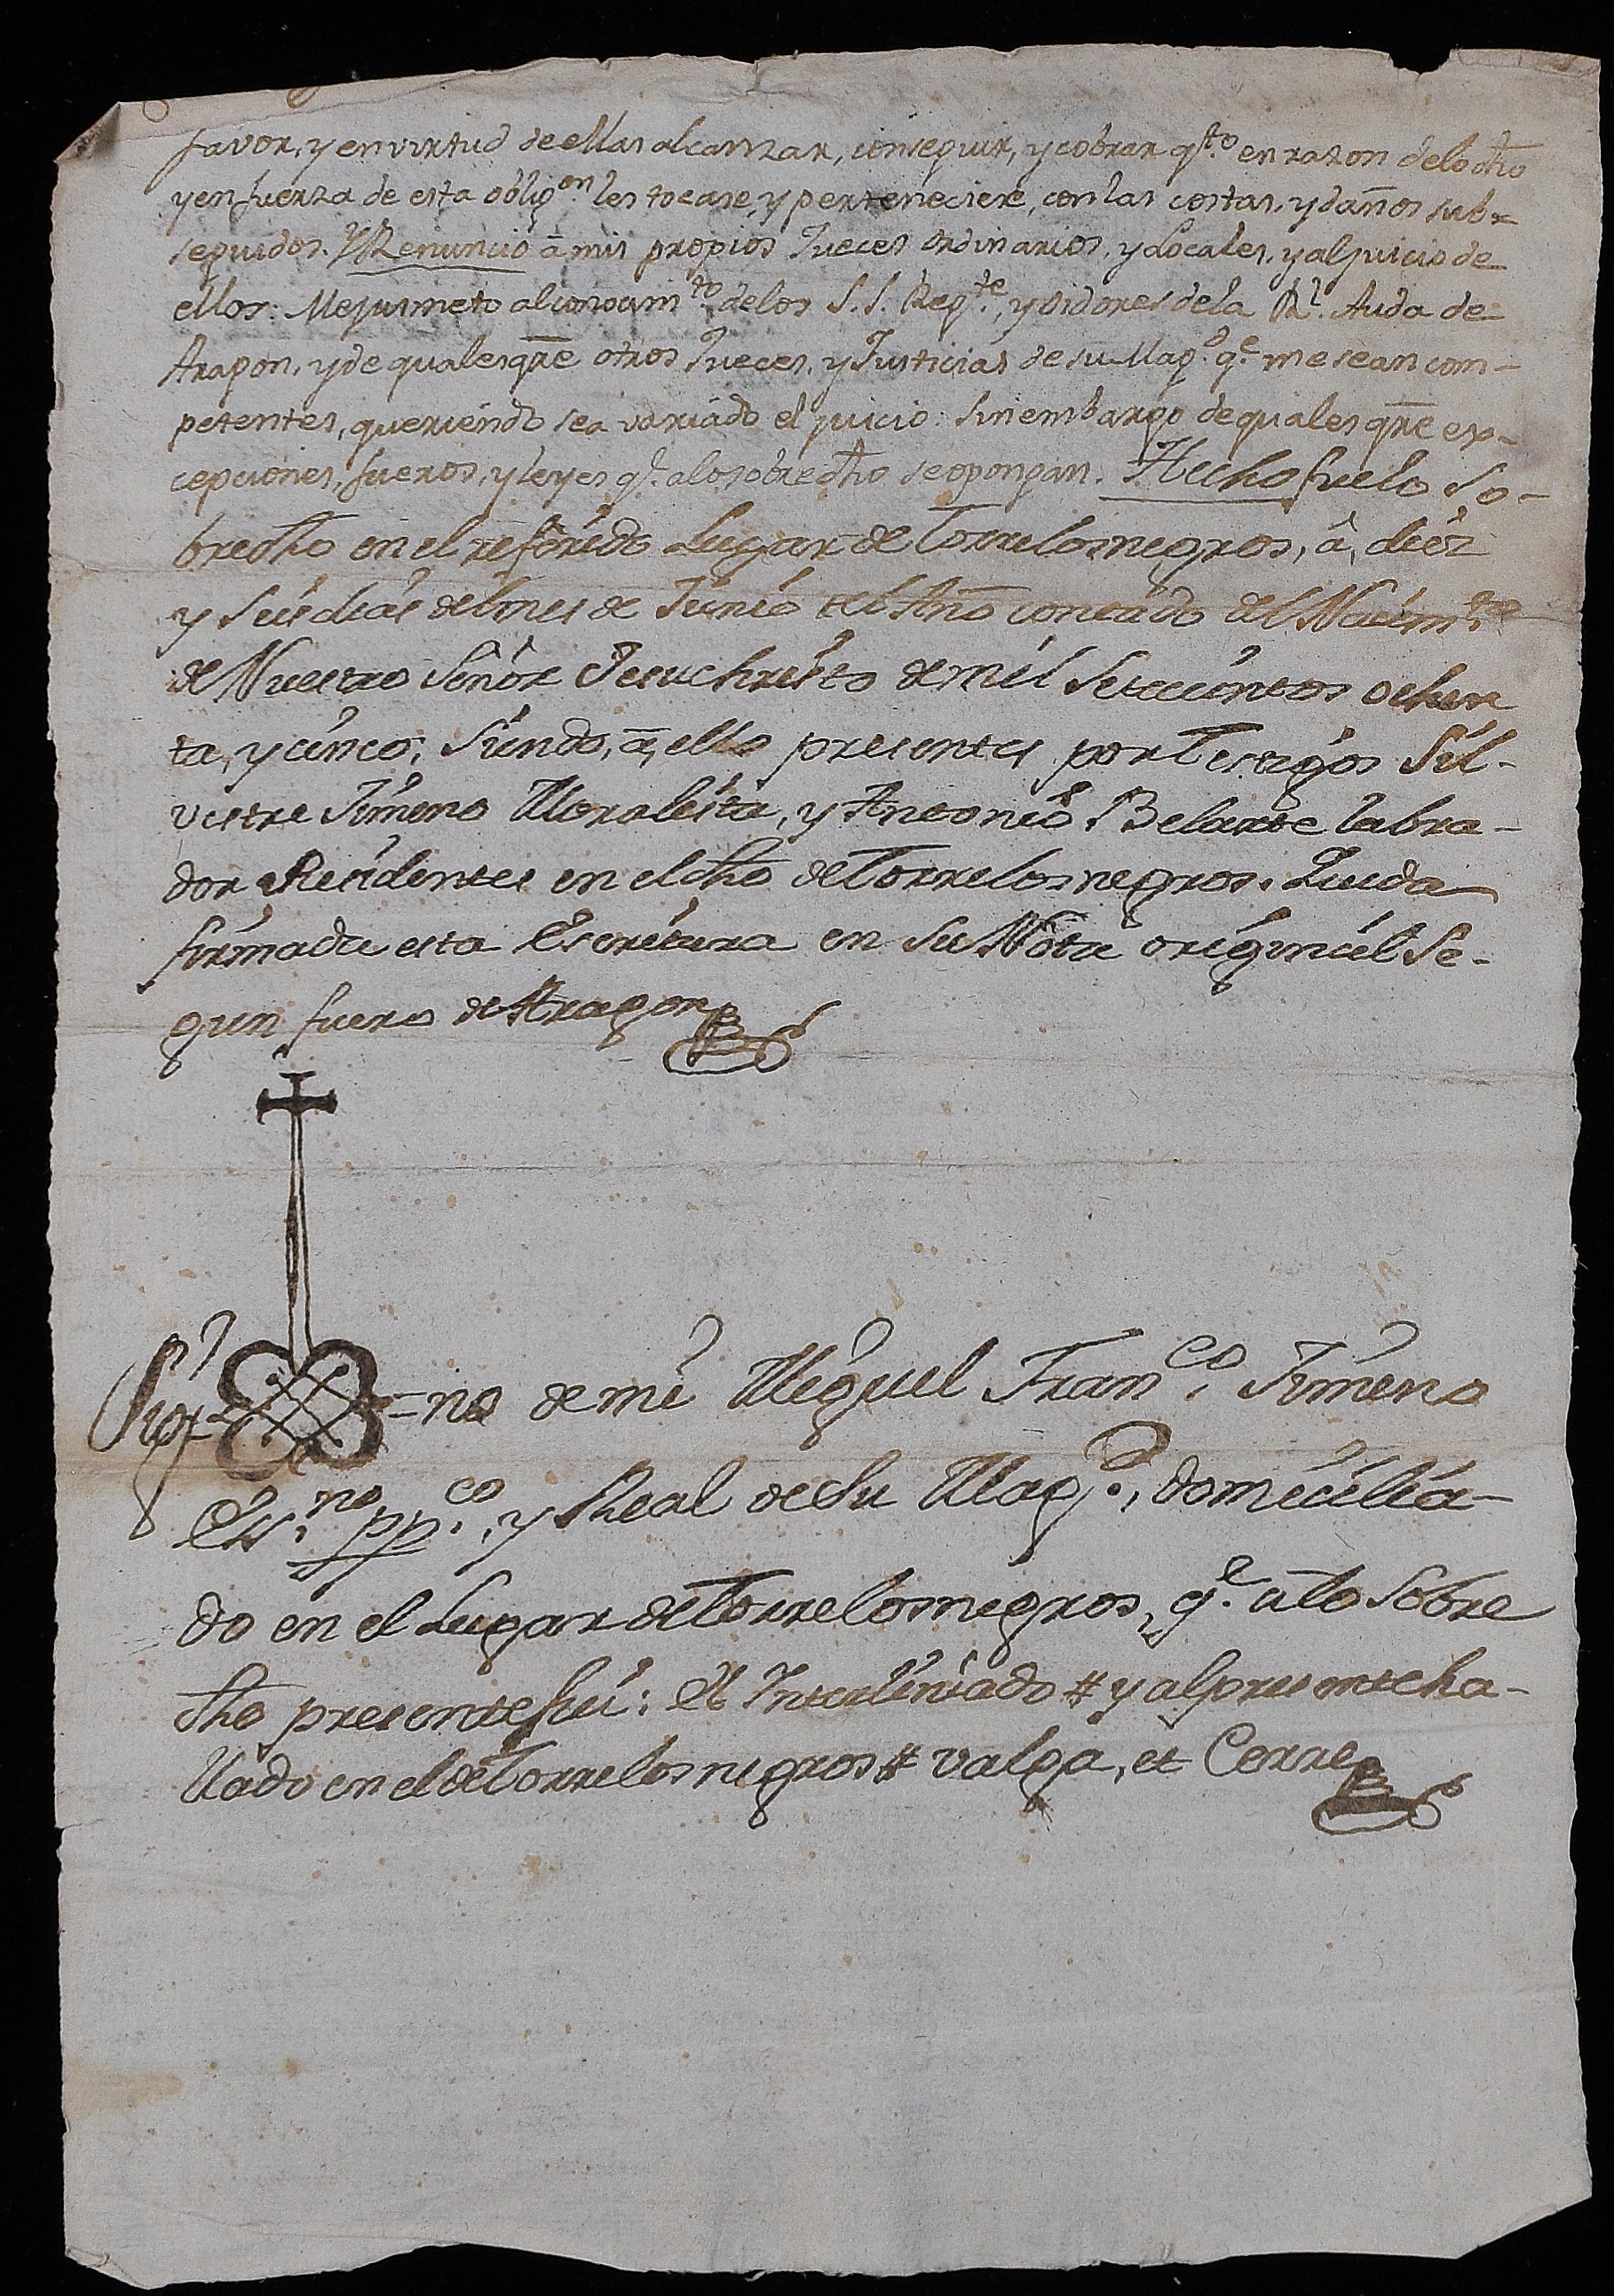 favor, y en virtud de ellas alcanzar, conseguir, y cobrar q.to en razon de lo dho
y en fuerza de esta oblig.on les tocase, y perteneciere, con las costas, y daños sub-
seguidos. Y Renuncio à mis propios Jueces ordinarios, y Locales, y al juicio de
ellos: Me jusmeto al conocim.to de los S.S. Reg.te, y oidores de la R.l Auda de
Aragon, y de qualesqre otros Jueces, y Justicias de su Mag.d q.e me sean com-
petentes, queriendo sea variado el juicio: sin embargo de qualesqre ex-
cepciones, fueros, y leyes q.e a lo sobredho se opongan. Hecho fue lo so-
bredho en el referido Lugar de Torrelosnegros, â, diez
y seis dias del mes de Junio del Año contado del Nacim.to
de Nuestro Señor Jesuchristo de mil setecientos ochen
ta, y cinco; siendo, à, ello presentes por Testigos Sil-
vestre Jimeno Moralista, y Antonio Belarte labra-
dor Residentes en el dho de Torrelosnegros. Queda
firmada esta Escritura en su Nota original se-
gun fuero de Aragon
Sig-no de mi Miguel Fran.co Jimeno
Ess.no pp.co, y Real de su Mag.d, domicilia-
do en el Lugar de Torrelosnegros, q.e a lo sobre
dho presente fui: El Interliniado # y al presente ha-
llado en el de Torrelosnegros # valga, et Cerre